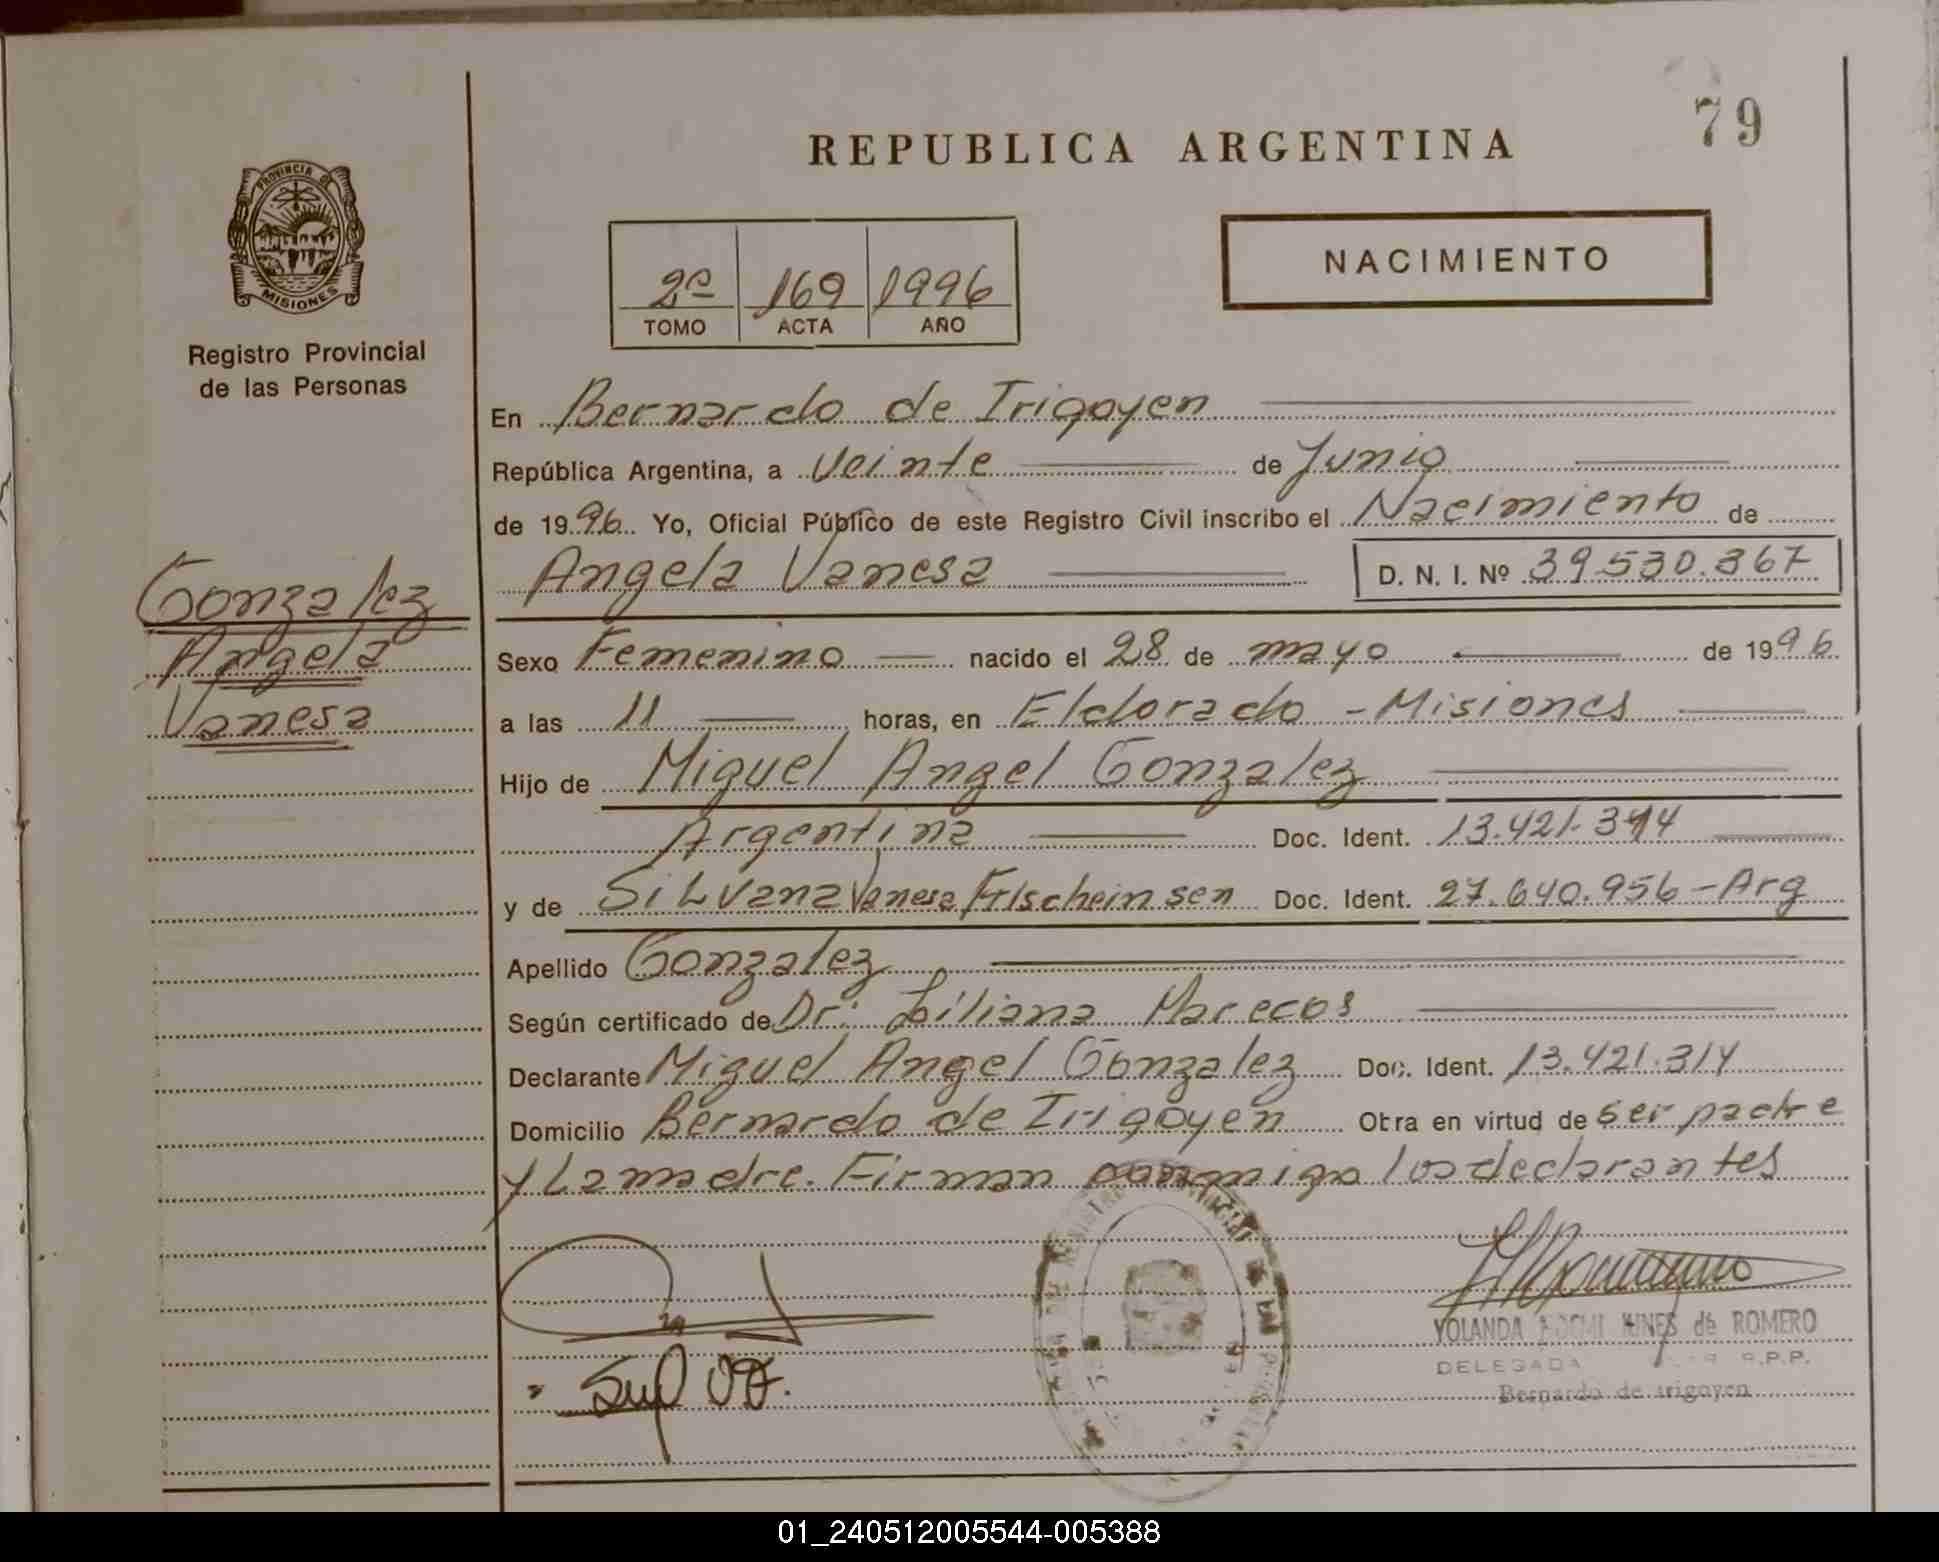 79
REPUBLICA ARGENTINA
PROVINCIA DE
MISIONES
Registro Provincial
de las Personas
NACIMIENTO
2º 169 1996
TOMO ACTA AÑO
En Bernardo de Irigoyen
República Argentina, a veinte de Junio
de 1996 Yo, Oficial Público de este Registro Civil inscribo el Nacimiento de
Angela Vanesa D. N. I. Nº 39.530.367
Gonzalez
Angela
Vanesa
Sexo Femenino nacido el 28 de mayo de 1996
a las 11 horas, en Eldorado - Misiones
Hijo de Miguel Angel Gonzalez
Argentina Doc. Ident. 13.421.314
y de Silvana Vanesa Doc. Ident. 27.640.956 - Arg
Apellido Gonzalez
Según certificado de Dr: Liliana Marecos
Declarante Miguel Angel Gonzalez Doc. Ident. 13.421.314
Domicilio Bernardo de Irigoyen Obra en virtud de ser padre
y La madre. Firman conmigo los declarantes
YOLANDA NUNES de ROMERO
DELEGADA R.P.P.
Bernardo de Irigoyen
01_240512005544-005388